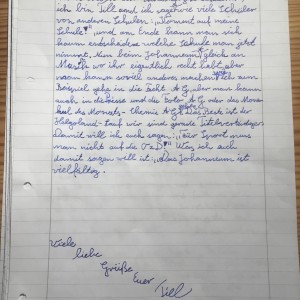 ich bin, Till und ich
viele Schüler
von anderen Schulen: „Kommt auf meine
Schule!" und am Ende kann man sich
kaum entscheiden welche Schule man jetzt
nimmt. Nun beim Johanneum gleich an
ihr eigentlich recht habt, aber
man kann soviel anderes machen. Ich zum
Beispiel gehe in die AG aber man kann
auch in die und die AG oder des Mona
des Monats - Chemie AG. Das Beste ist der
Helgoland-Lauf wir sind gerade Titelverteidiger
damit will ich euch sagen: „Für Sport muss
man nicht auf die OzD!" Was ich euch
damit sagen will ist: „Das Johanneum ist
vielfältig."
Viele
liebe
Grüße
Euer
Till